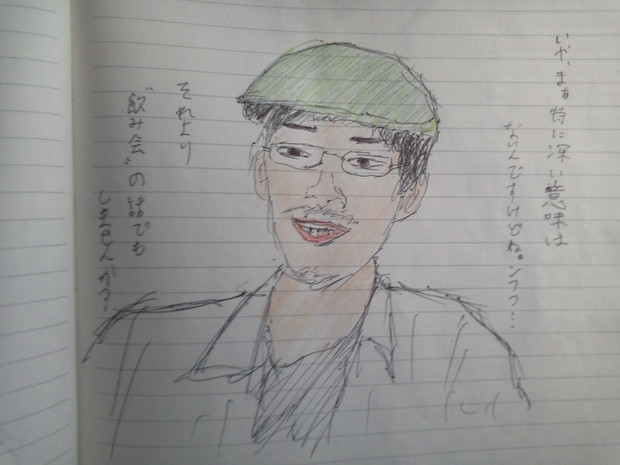 いや、まぁ特に深い意味は
ないんですけどね。ンフフ…
それより
"飲み会"の話でも
しませんか?